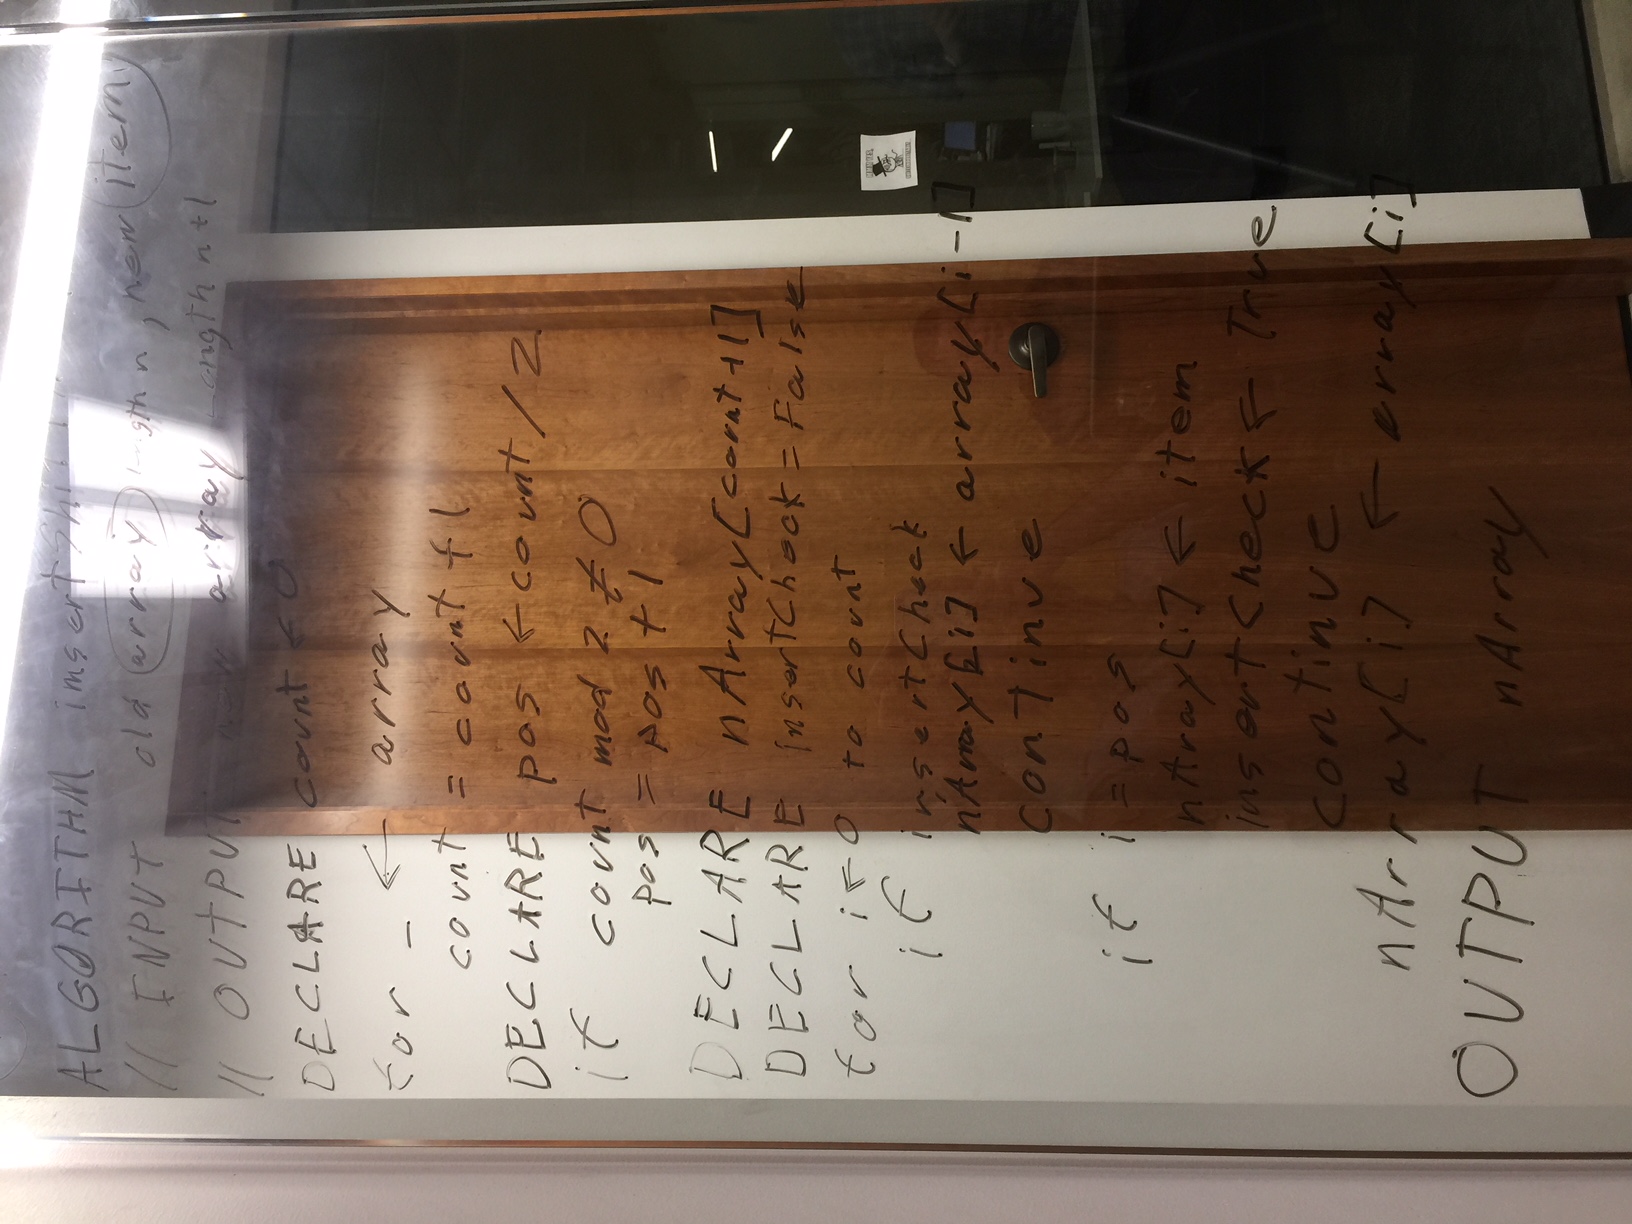 ALGORITHM
// INPUT old array length n, new item
// OUTPUT new array Length n+1
DECLARE count ← 0
for _ ← array
count = count + 1
DECLARE pos ← count / 2
if count mod 2 ≠ 0
pos = pos + 1
DECLARE nArray[count+1]
DECLARE insertCheck = False
for i ← 0 to count
if insertCheck
nArray[i] ← array[i-1]
continue
if i = pos
nArray[i] ← item
insertCheck ← True
continue
nArray[i] ← array[i]
OUTPUT nArray